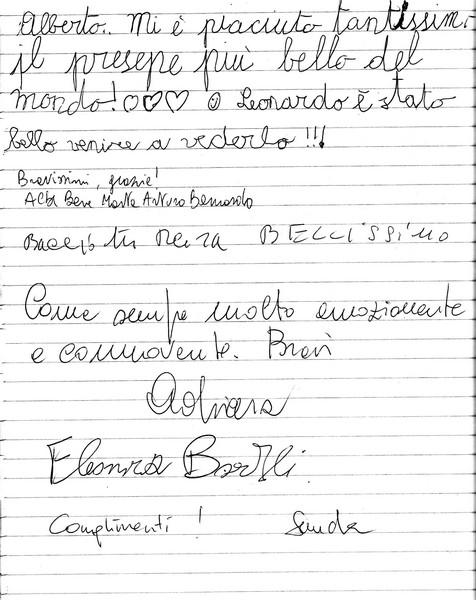 Alberto.. Mi è piaciuto tantissim.
il presepe più bello del
mondo! ♡♡♡ ☺ Leonardo È stato
bello venire a vederlo !!!
Bravissimi, grazie!
Alba Bene Marta Arturo
BELLISSIMO
Come sempre molto emozionante
e commovente. Bravi
Adriana
Eleonora
Complimenti !